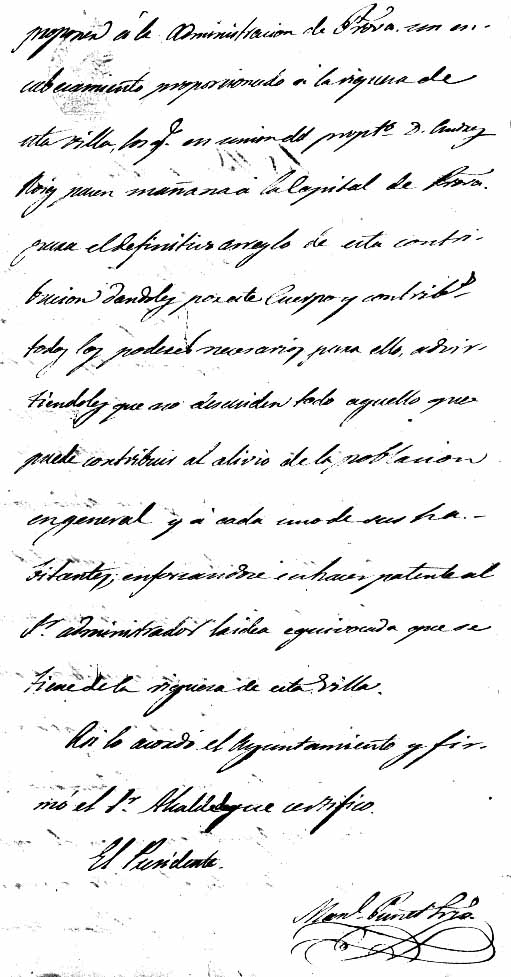 proponer á la Administracion de Prova. un en-
cabezamiento proporcionado á la riqueza de
esta villa, los q.e en union del propto. D. Andrez
Roig pasen mañana á la Capital de Prova.
para el definitivo arreglo de esta contri-
bucion dandoles por este Cuerpo y contribs.
todos los poderes necesarios para ello, advir-
tiendoles que no descuiden todo aquello que
puede contribuir al alivio de la poblacion
en general y á cada uno de sus ha-
bitantes, enforzandose en hacer patente al
Sr. administrador la idea equivocada que se
tiene de la riqueza de esta Villa.
Asi lo acordó el Ayuntamiento y fir-
mó el Sr. Alcalde que certifico.
El Presidente.
Manl. Srio.